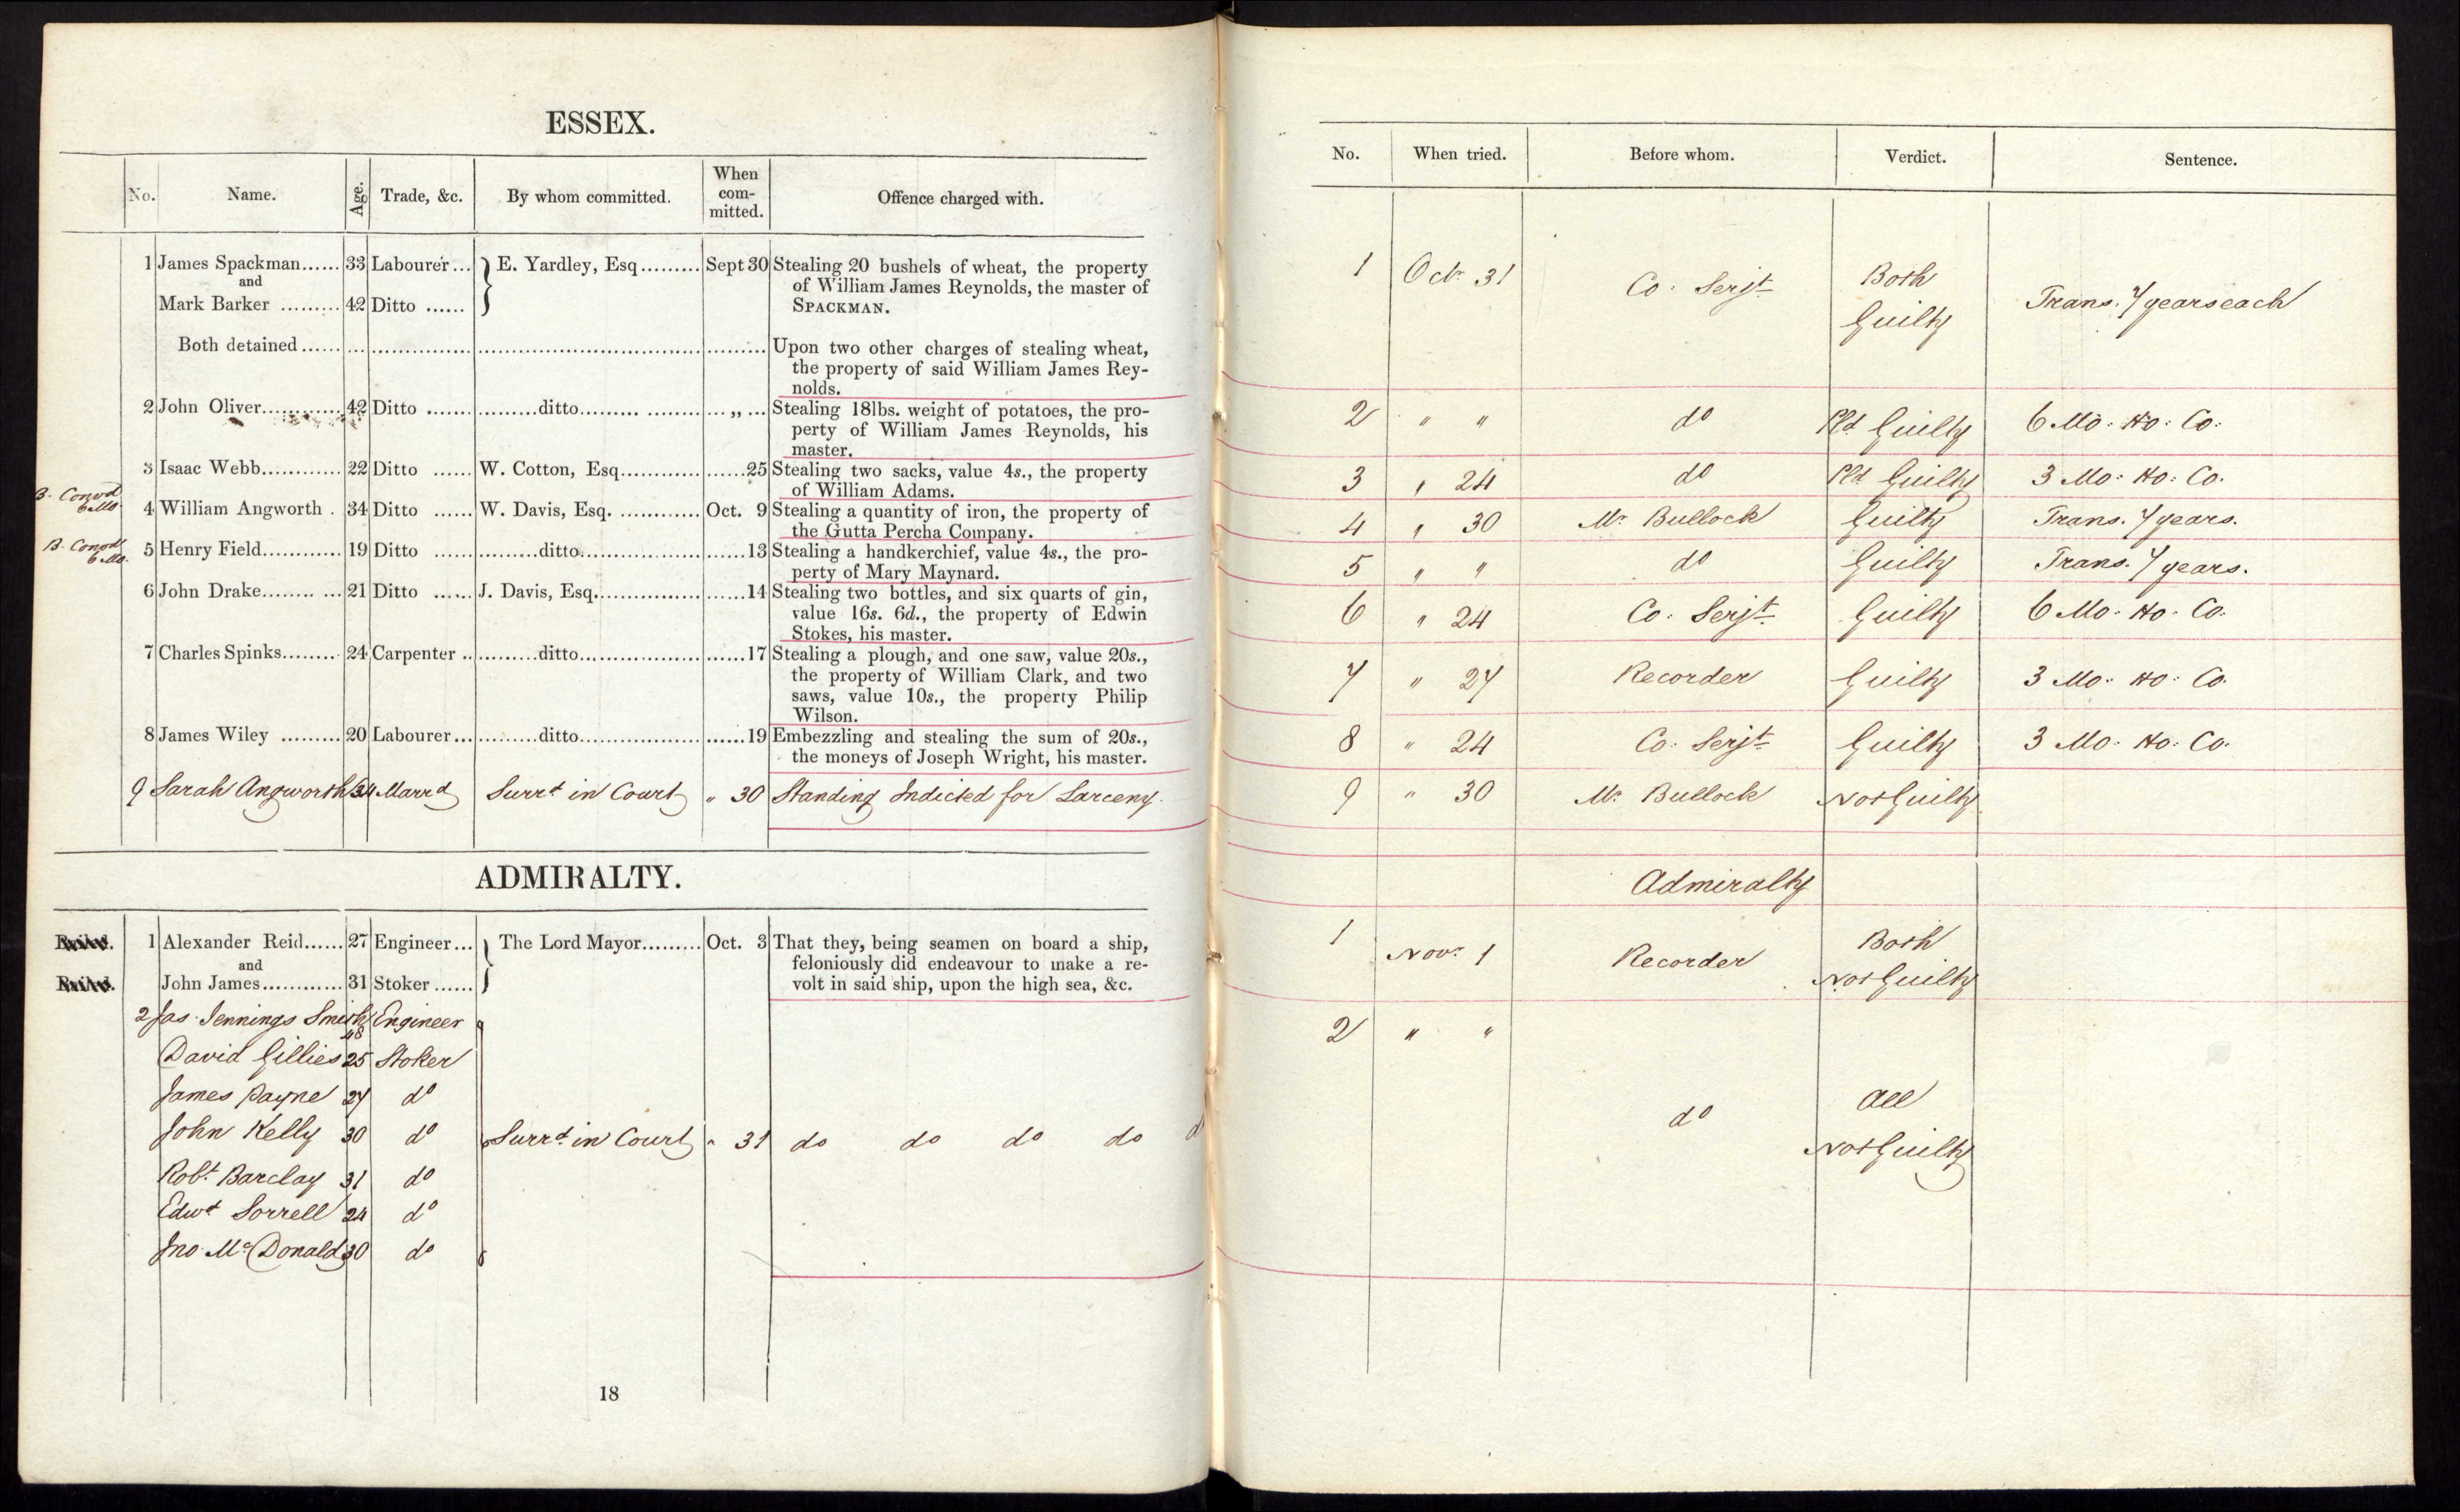 ESSEX.
No. Name. Age. Trade, &c. By whom committed. When com-mitted. Offence charged with.
1 James Spackman...... 33 Labourer... E. Yardley, Esq......... Sept 30 Stealing 20 bushels of wheat, the property
and of William James Reynolds, the master of
Mark Barker ......... 42 Ditto ...... SPACKMAN.
Both detained...... Upon two other charges of stealing wheat,
the property of said William James Rey-
nolds.
2 John Oliver............ 42 Ditto ....... .........ditto......... ......... ... „ ... Stealing 18lbs. weight of potatoes, the pro-
perty of William James Reynolds, his
master.
3 Isaac Webb............ 22 Ditto ...... W. Cotton, Esq............ ......25 Stealing two sacks, value 4s., the property
of William Adams.
B. Convd 6 Mo. 4 William Angworth . 34 Ditto ...... W. Davis, Esq. ............ Oct. 9 Stealing a quantity of iron, the property of
the Gutta Percha Company.
B. Convd 6 Mo. 5 Henry Field............ 19 Ditto ...... .........ditto.................. ......13 Stealing a handkerchief, value 4s., the pro-
perty of Mary Maynard.
6 John Drake........ ... 21 Ditto ...... J. Davis, Esq................. ......14 Stealing two bottles, and six quarts of gin,
value 16s. 6d., the property of Edwin
Stokes, his master.
7 Charles Spinks......... 24 Carpenter .. .........ditto.................. ......17 Stealing a plough, and one saw, value 20s.,
the property of William Clark, and two
saws, value 10s., the property Philip
Wilson.
8 James Wiley ......... 20 Labourer... .........ditto.................. ......19 Embezzling and stealing the sum of 20s.,
the moneys of Joseph Wright, his master.
9 Sarah Angworth 34 Marrd Surrd in Court " 30 Standing Indicted for Larceny.
ADMIRALTY.
1 Alexander Reid...... 27 Engineer... The Lord Mayor......... Oct. 3 That they, being seamen on board a ship,
and feloniously did endeavour to make a re-
John James............ 31 Stoker...... volt in said ship, upon the high sea, &c.
2 Jas. Jennings Smith 48 Engineer
David Gillies 25 Stoker
James Payne 27 do
John Kelly 30 do Surrd in Court " 31 do do do do d
Robt Barclay 31 do
Edwd Sorrell 24 do
Jno McDonald 30 do
18
No. When tried. Before whom. Verdict. Sentence.
1 Octr 31 Co. Serjt Both Guilty Trans. 7 years each
2 " " do Pld Guilty 6 Mo. Ho. Co.
3 " 24 do Pld Guilty 3 Mo. Ho. Co.
4 " 30 Mr Bullock Guilty Trans. 7 years.
5 " " do Guilty Trans. 7 years.
6 " 24 Co. Serjt Guilty 6 Mo. Ho. Co.
7 " 27 Recorder Guilty 3 Mo. Ho. Co.
8 " 24 Co. Serjt Guilty 3 Mo. Ho. Co.
9 " 30 Mr Bullock Not Guilty
Admiralty
1 Novr 1 Recorder Both Not Guilty
2 " "
do All Not Guilty